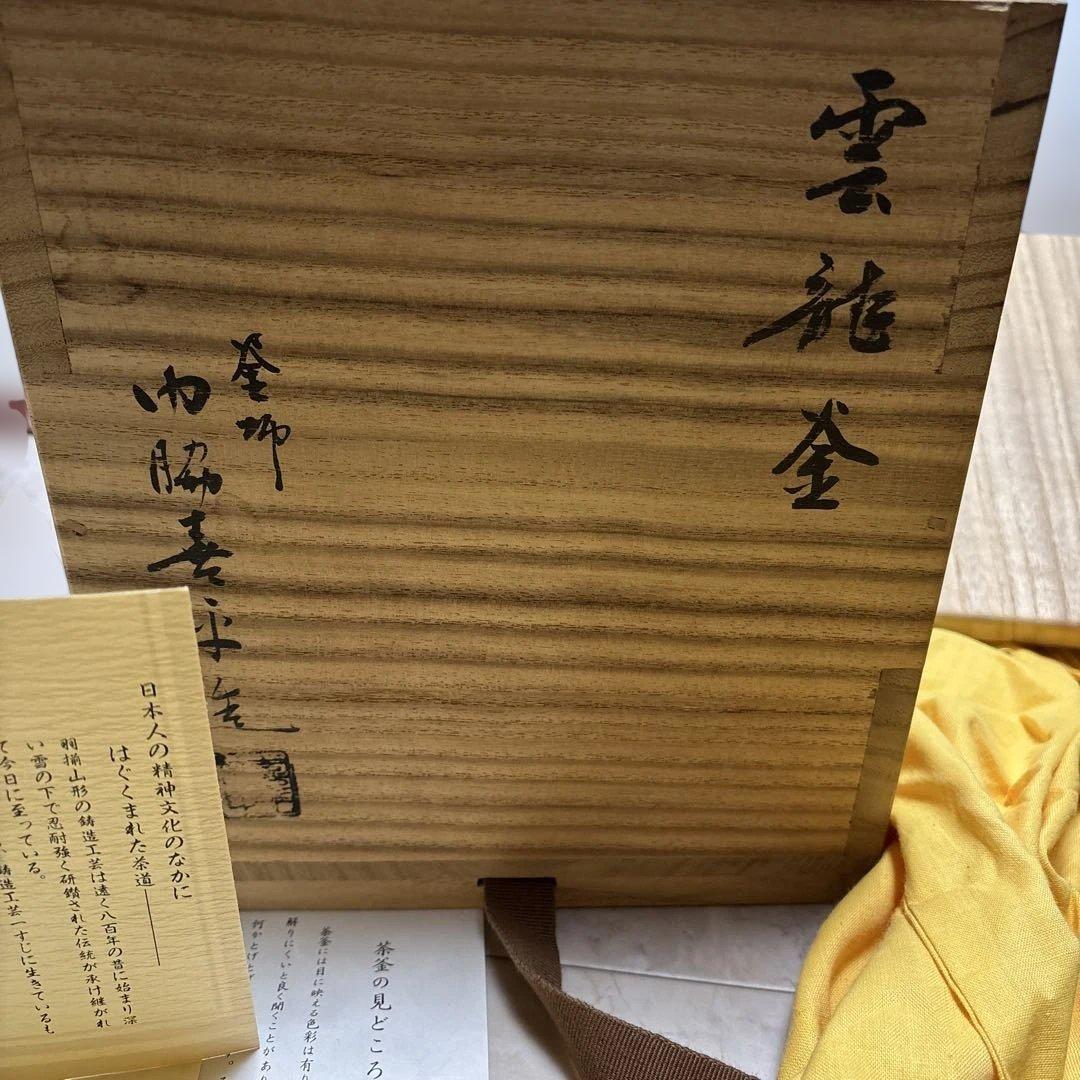 雲龍釜
釜師
内脇喜平造
日本人の精神文化のなかに
はぐくまれた茶道――
羽揃山形の鋳造工芸は遠く八百年の昔に始まり深
い雪の下で忍耐強く研鑽された伝統が承け継がれ
て今日に至っている。
鋳造工芸一すじに生きているも
茶釜の見どころ
茶釜には目に映える色彩は有り
解りにくいと良く聞くことがあり
何かとげとげ